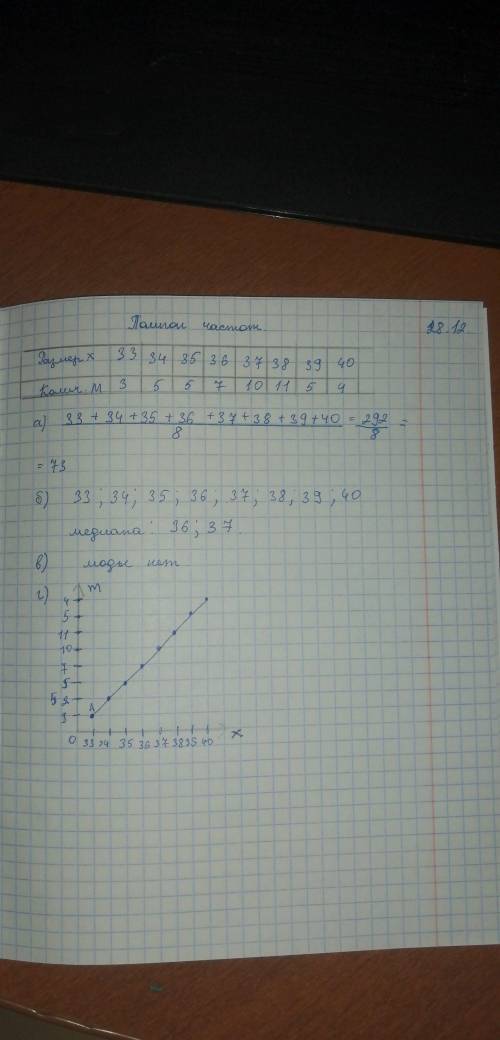 Полигон частот. 28.12
Размер X 33 34 35 36 37 38 39 40
Колич. M 3 5 5 7 10 11 5 4
а) 33 + 34 + 35 + 36 + 37 + 38 + 39 + 40 / 8 = 292 / 8 =
= 73
б) 33 ; 34 ; 35 ; 36 ; 37 ; 38 ; 39 ; 40
медиана: 36 ; 37.
в) моды нет
г) m
4
5
11
10
7
5
5
3 A
0 33 34 35 36 37 38 35 40 x